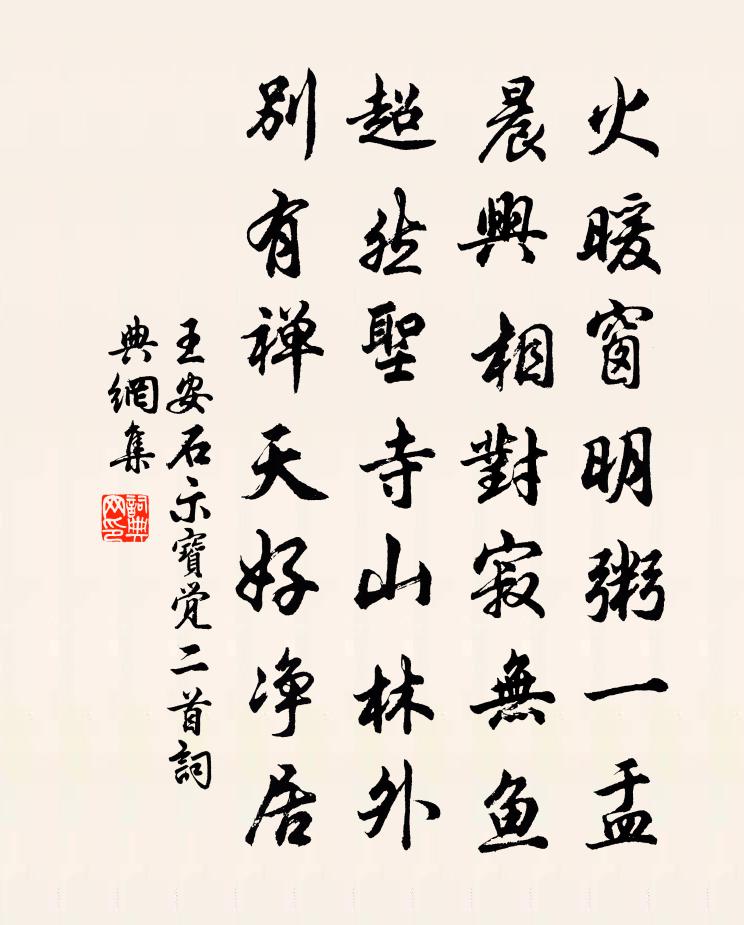 火暖窗明粥一盂
晨興相對寂無魚
超然聖寺山林外
別有禅天好净居
王安石示寶觉二首詞
典網集
詞典
网印